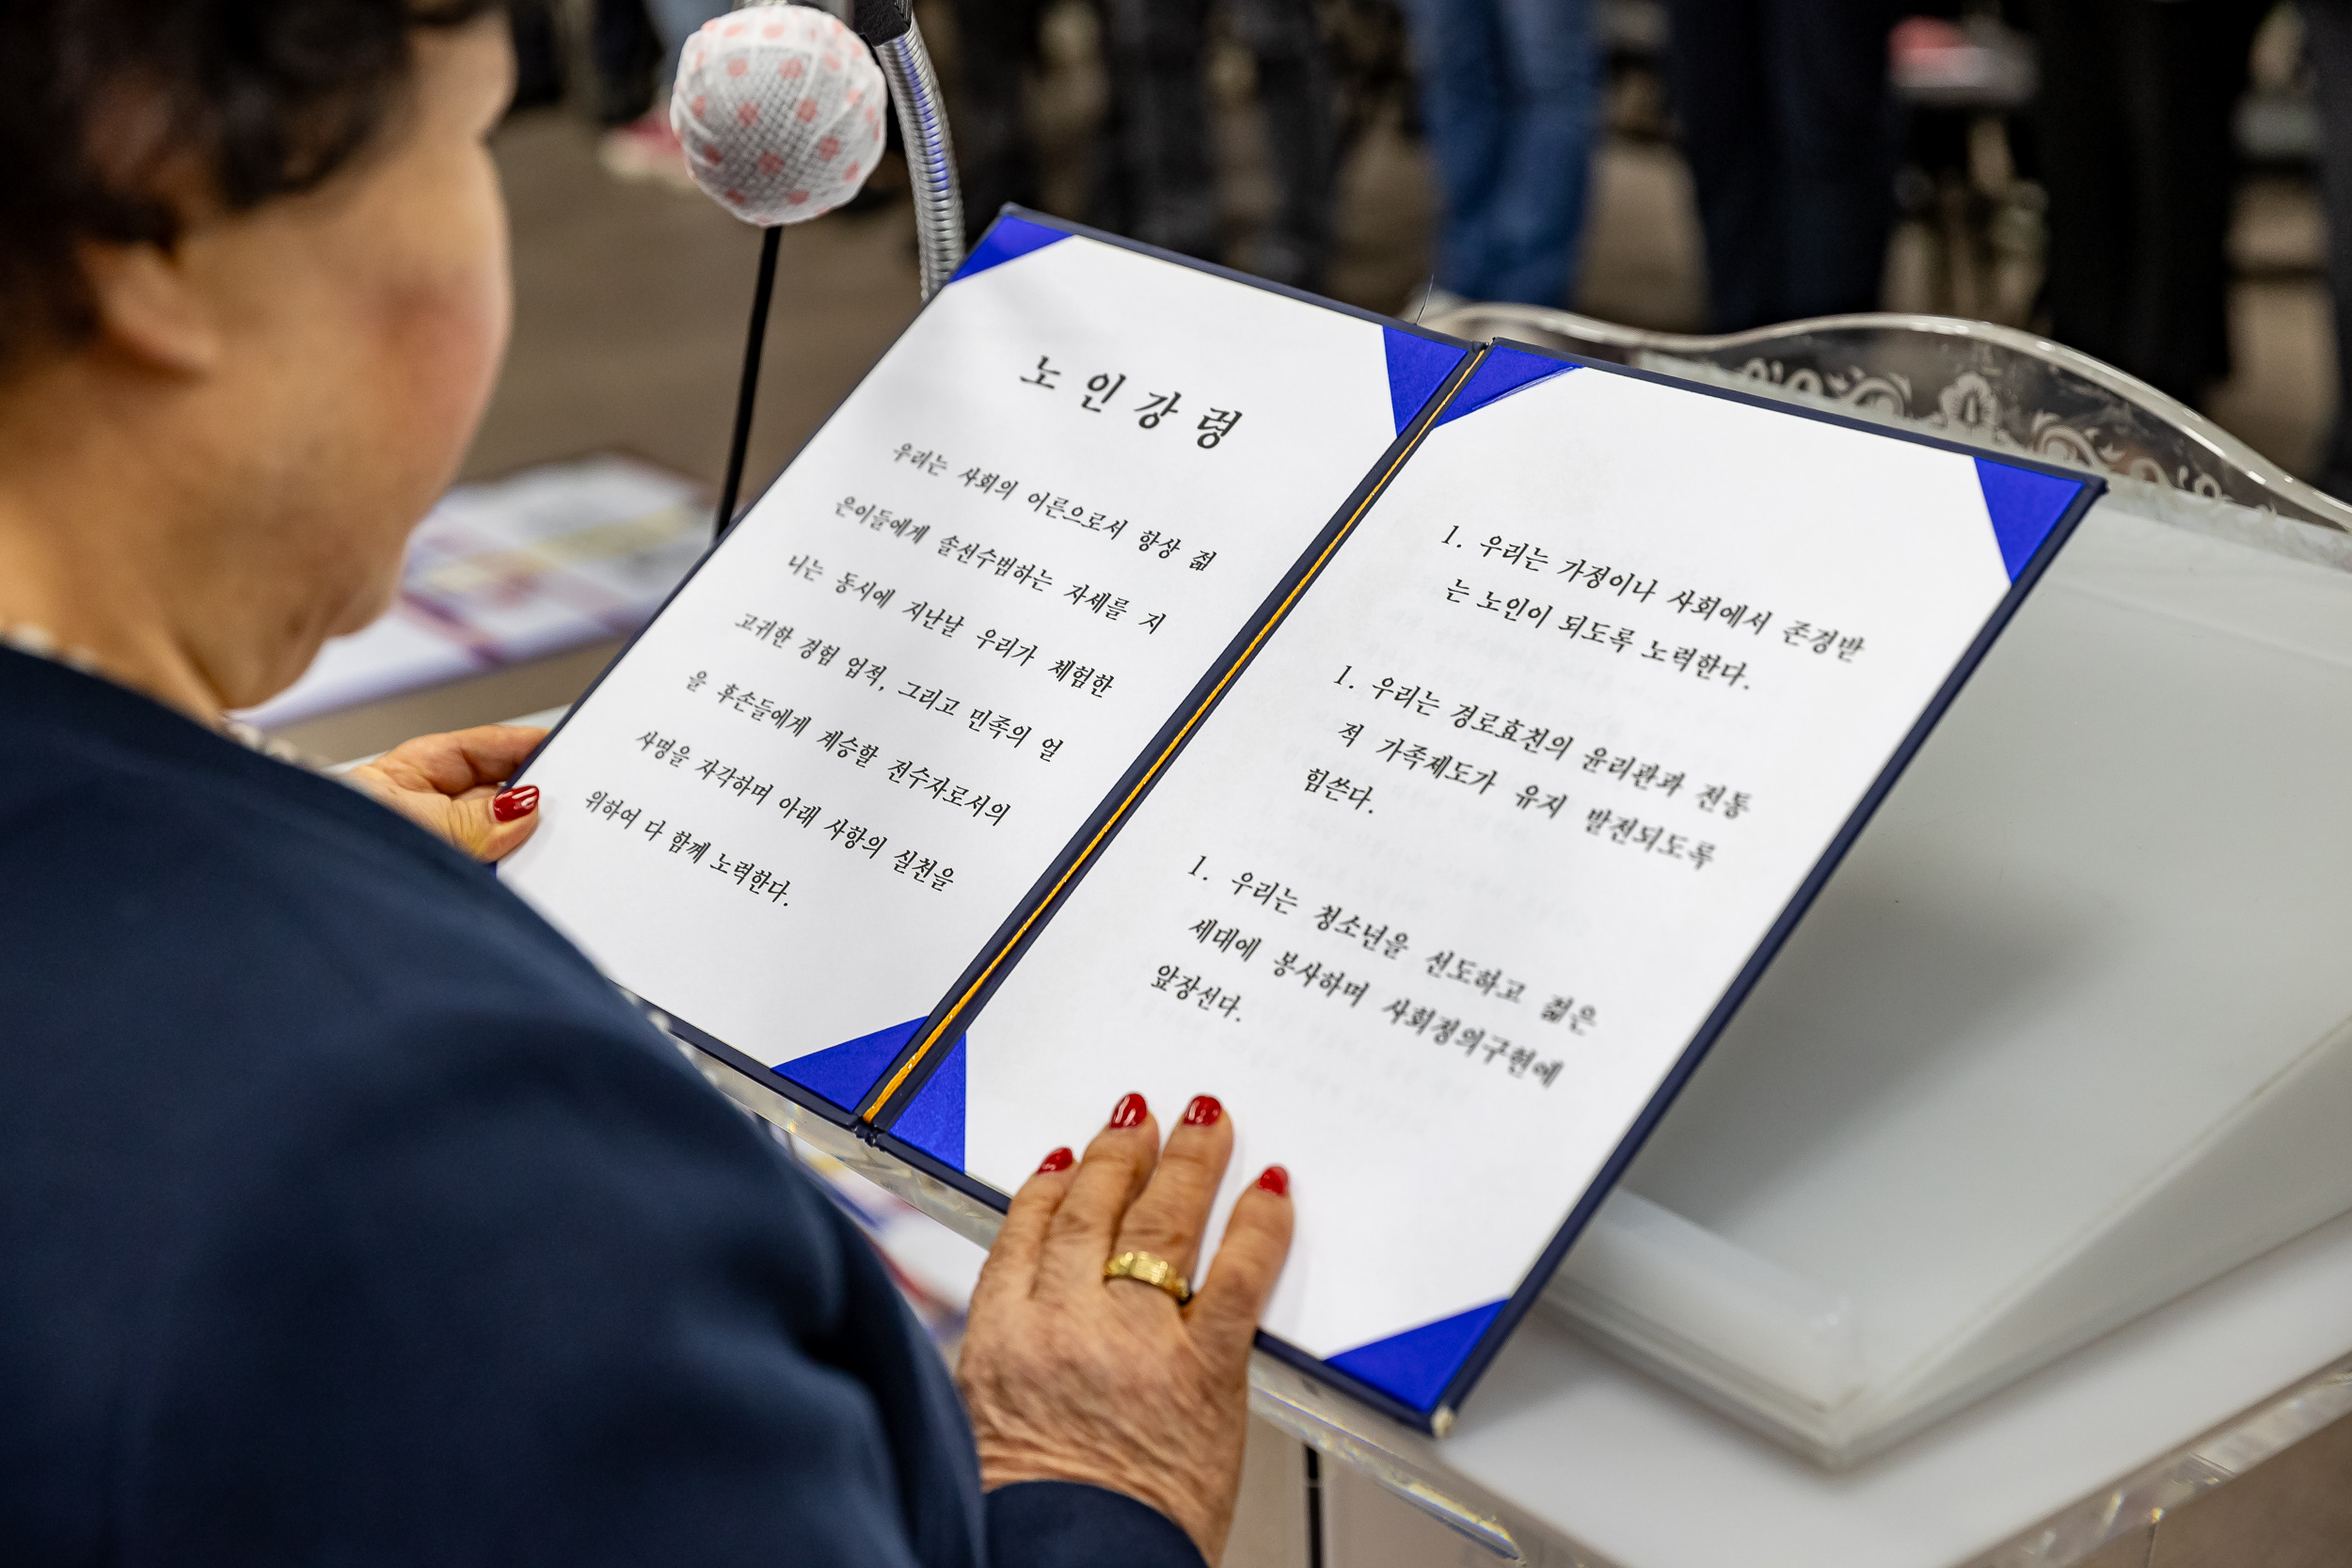 노인강령
우리는 사회의 어른으로서 항상 젊
은이들에게 솔선수범하는 자세를 지
니는 동시에 지난날 우리가 체험한
고귀한 경험 업적, 그리고 민족의 얼
을 후손들에게 계승할 전수자로서의
사명을 자각하며 아래 사항의 실천을
위하여 다 함께 노력한다.
1. 우리는 가정이나 사회에서 존경받
는 노인이 되도록 노력한다.
1. 우리는 경로효친의 윤리관과 전통
적 가족제도가 유지 발전되도록
힘쓴다.
1. 우리는 청소년을 선도하고 젊은
세대에 봉사하며 사회정의구현에
앞장선다.